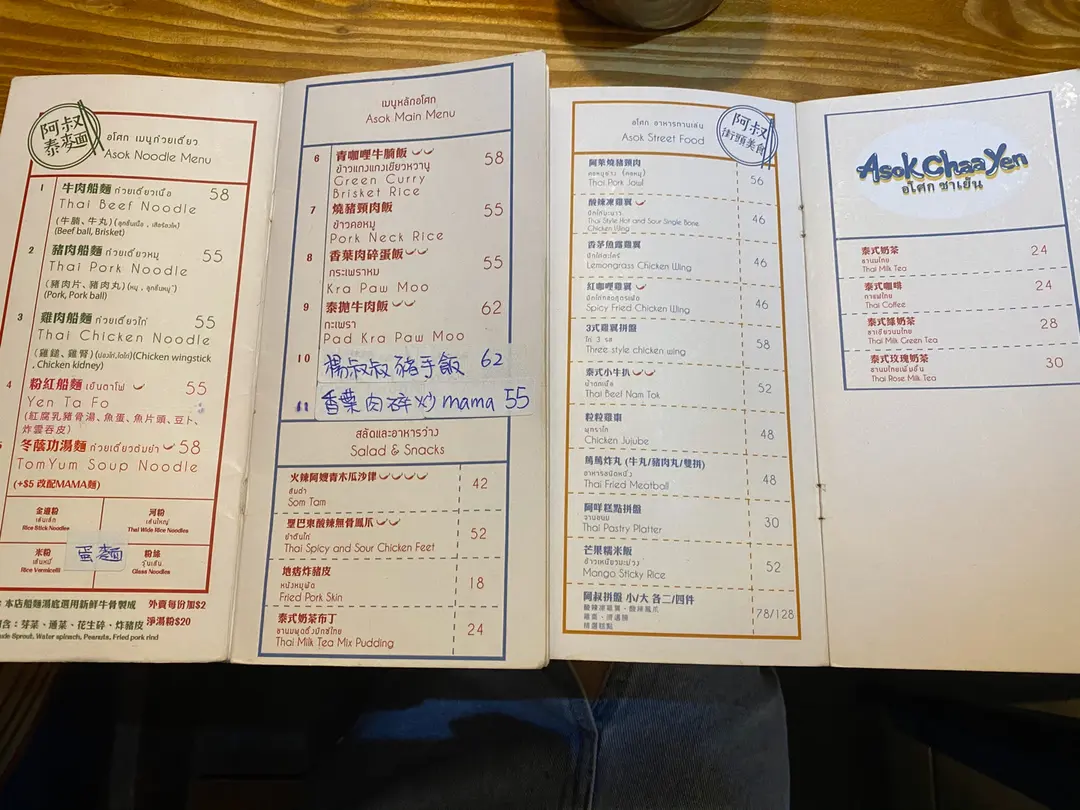 阿叔
泰麥麵
อโศก เมนูก๋วยเตี๋ยว
Asok Noodle Menu
1 牛肉船麵 ก๋วยเตี๋ยวเนื้อ 58
Thai Beef Noodle
(牛腩、牛丸)
(Beef ball, Brisket)
2 豬肉船麵 ก๋วยเตี๋ยวหมู 55
Thai Pork Noodle
(豬肉片、豬肉丸)
(Pork, Pork ball)
3 雞肉船麵 ก๋วยเตี๋ยวไก่ 55
Thai Chicken Noodle
(雞鎚、雞腎) (Chicken wingstick
, Chicken kidney)
4 粉紅船麵 เย็นตาโฟ 55
Yen Ta Fo
(紅腐乳豬骨湯、魚蛋、魚片頭、豆卜、
炸雲吞皮)
冬蔭功湯麵 ก๋วยเตี๋ยวต้มยำ 58
TomYum Soup Noodle
(+$5 改配MAMA麵)
金邊粉
เส้นเล็ก
Rice Stick Noodles
河粉
เส้นใหญ่
Thai Wide Rice Noodles
米粉
เส้นหมี่
Rice Vermicelli
蛋麵
粉絲
วุ้นเส้น
Glass Noodles
本店船麵湯底選用新鮮牛骨製成 外賣每份加$2
含：芽菜、通菜、花生碎、炸豬皮 淨湯粉$20
Sprout, Water spinach, Peanuts, Fried pork rind
เมนูหลักอโศก
Asok Main Menu
6 青咖哩牛腩飯 58
ข้าวแกงแกงเขียวหวานู
Green Curry
Brisket Rice
7 燒豬頸肉飯 55
ข้าวคอหมู
Pork Neck Rice
8 香葉肉碎蛋飯 55
กระเพราหม
Kra Paw Moo
9 泰拋牛肉飯 62
กะเพรา
Pad Kra Paw Moo
10 楊叔叔豬手飯 62
11 香葉肉碎炒mama 55
สลัดและอาหารว่าง
Salad & Snacks
火辣阿嫂青木瓜沙律 42
ส้มตำ
Som Tam
聖巴東酸辣無骨鳳爪 52
ยำตีนไก่
Thai Spicy and Sour Chicken Feet
地痞炸豬皮 18
หนังหมูทอด
Fried Pork Skin
泰式奶茶布丁 24
Thai Milk Tea Mix Pudding
อโศก อาหารทานเล่น
Asok Street Food
阿叔
街頭美食
阿華燒豬頸肉 56
Thai Pork Jowl
酸辣凍雞翼 46
Thai Style Hot and Sour Single Bone
Chicken Wing
香茅魚露雞翼 46
Lemongrass Chicken Wing
紅咖哩雞翼 46
Spicy Fried Chicken Wing
3式雞翼拼盤 58
ไก่ 3 รส
Three style chicken wing
泰式小牛扒 52
น้ำตกเนื้อ
Thai Beef Nam Tok
粒粒雞棗 48
Chicken Jujube
篤篤炸丸 (牛丸/豬肉丸/雙拼) 48
Thai Fried Meatball
阿咩糕點拼盤 30
จานขนม
Thai Pastry Platter
芒果糯米飯 52
ข้าวเหนียวมะม่วง
Mango Sticky Rice
阿叔拼盤 小/大 各二/四件 78/128
酸辣凍雞翼、酸辣鳳爪
精選糕點
Asok Chaa Yen
อโศก ชาเย็น
泰式奶茶 24
ชานมไทย
Thai Milk Tea
泰式咖啡 24
กาแฟไทย
Thai Coffee
泰式綠奶茶 28
ชาเขียวนมไทย
Thai Milk Green Tea
泰式玫瑰奶茶 30
ชานมไทยเพิ่มชื่น
Thai Rose Milk Tea